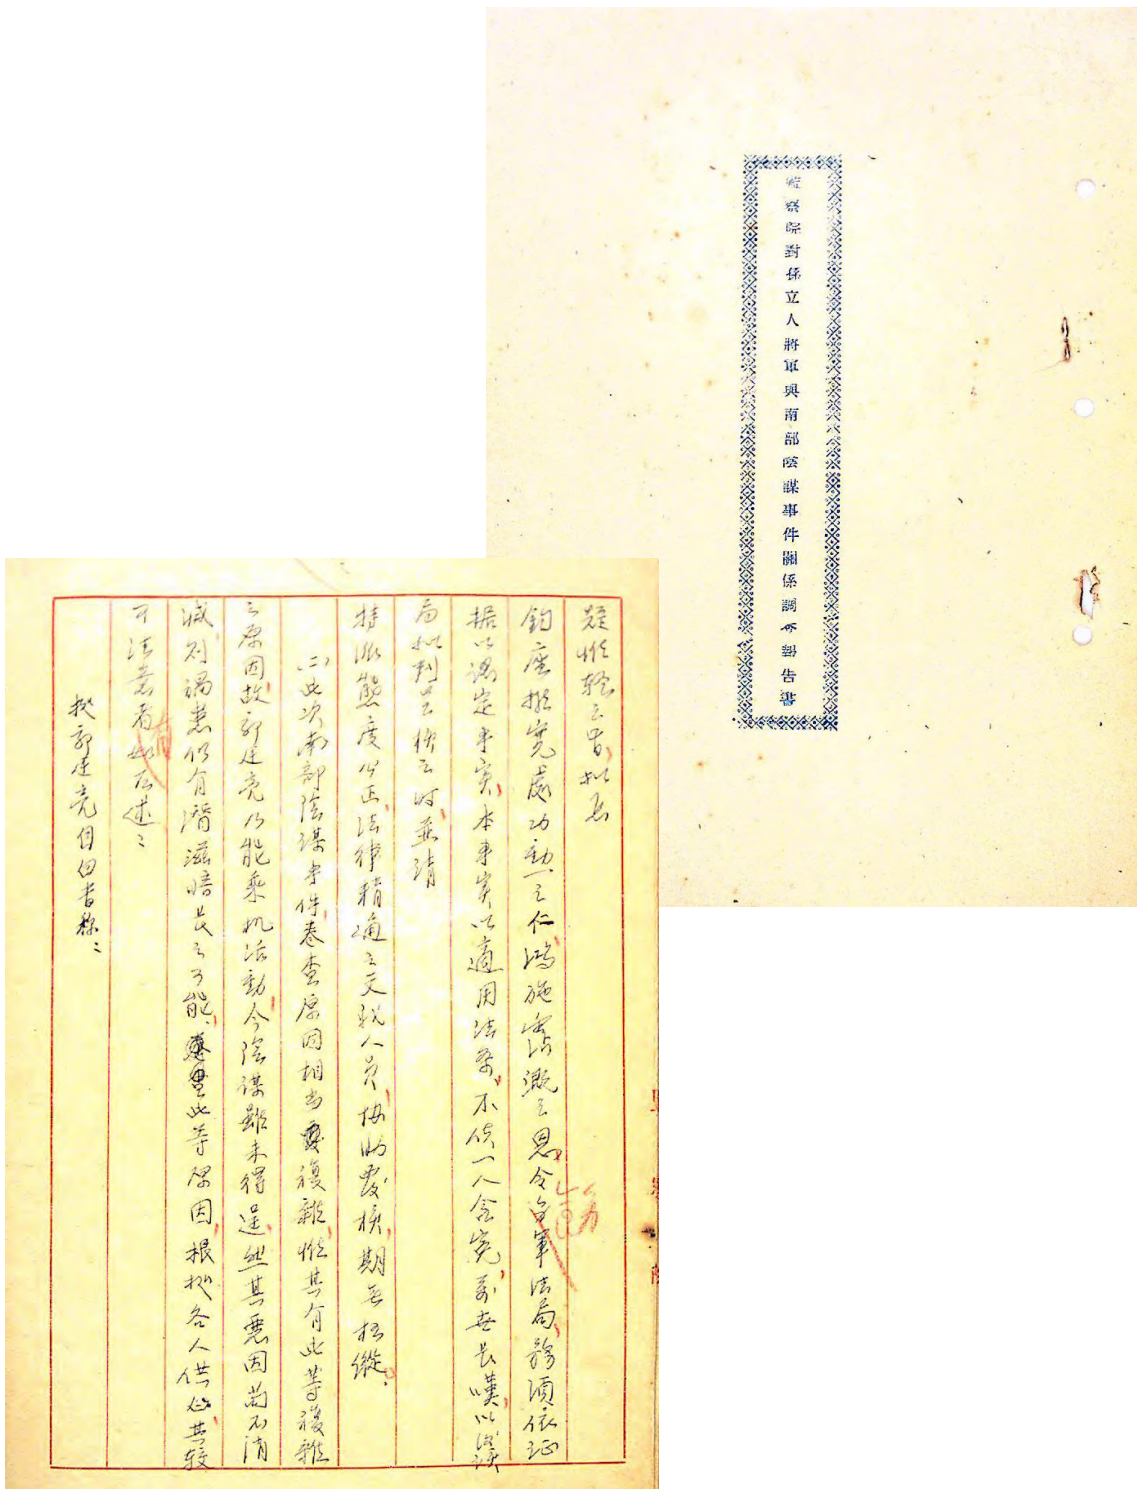 監察院對孫立人將軍與南部陰謀事件關係調查報告書
疑惟輕之旨，擬懇
鈞座推寬處功勳之仁，鴻施霑溉之恩，令軍法局務須依証
据以認定事实，本事实以適用法条，不使一人含冤，萬世長嘆，以
局擬判呈核之时，並請
特派態度公正，法律精通之文武人員，協助覆核，期無枉縱。
㈡此次南部陰謀事件，卷查原因相当複雜，惟其有此等複雜
之原因，故郭廷亮乃能乘机活動，今陰謀雖未得逞，然其惡因茍不消
滅，則禍患仍有潛滋暗長之可能，此等原因，根據各人供述，其較
可注意者有如左述：
据郭廷亮自白書称：